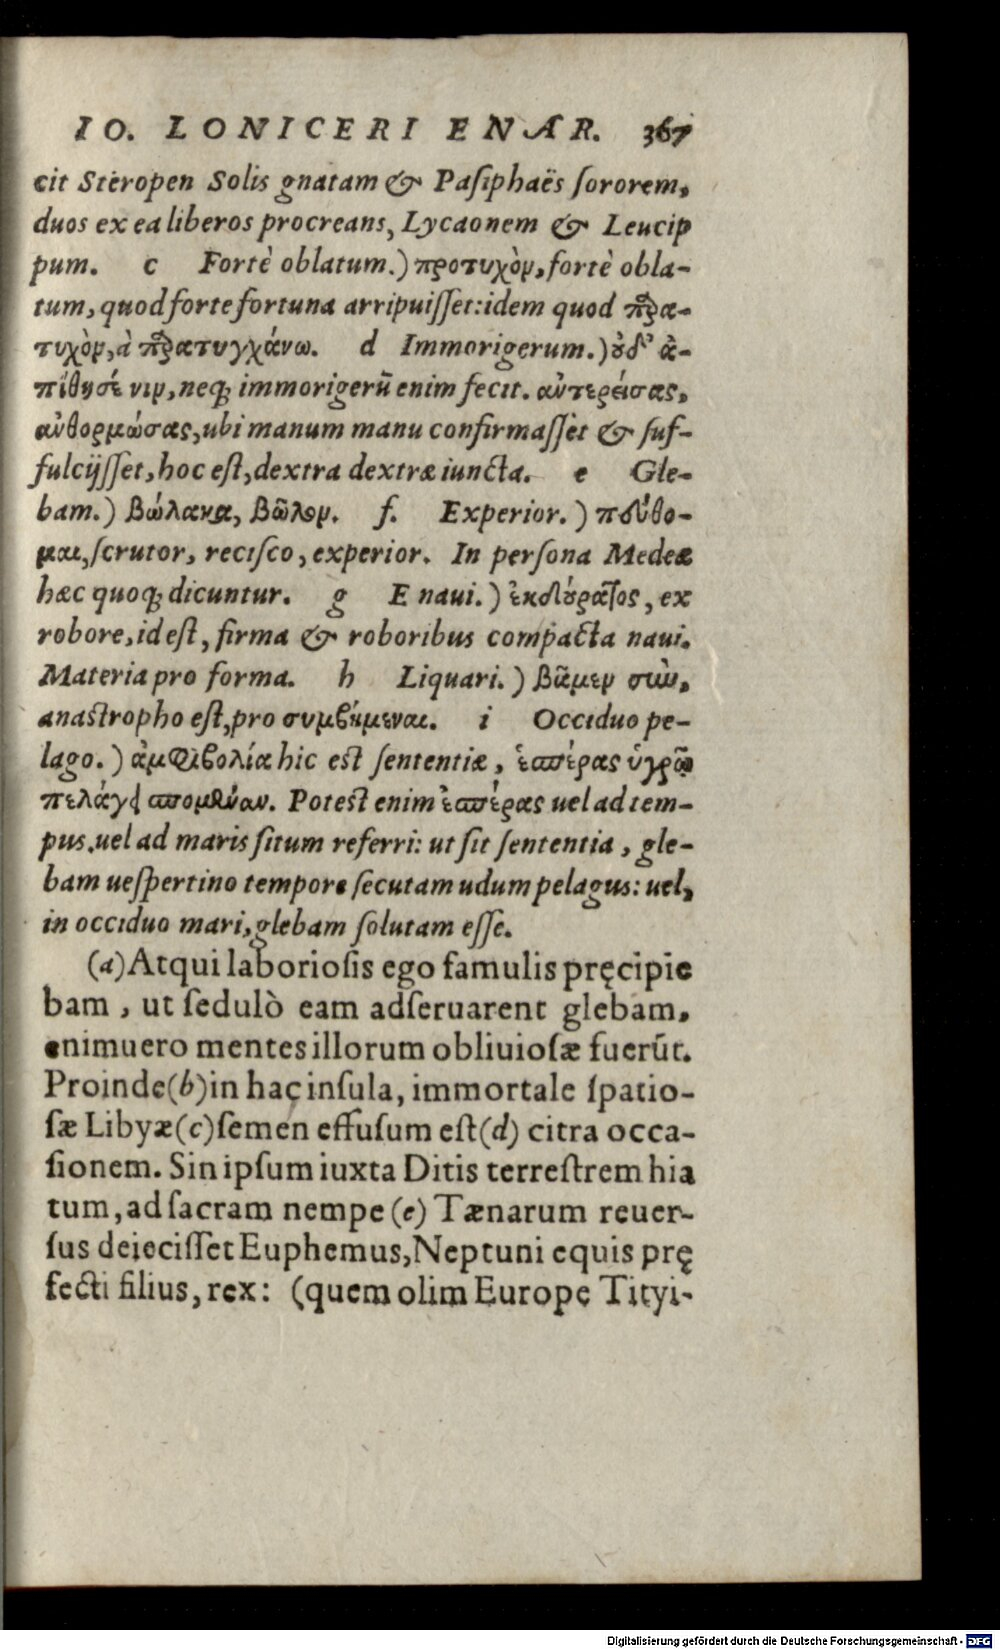 IO. LONICERI ENAR. 367
cit Steropen Solis gnatam & Pasiphaës sororem,
duos ex ea liberos procreans, Lycaonem & Leucip
pum. c Fortè oblatum.) προτυχὸν, fortè obla-
tum, quod forte fortuna arripuisset: idem quod παρα-
τυχὸν, à παρατυγχάνω. d Immorigerum.) οὐδ' ἀ-
πίθησέ νιν, neq; immorigerũ enim fecit. αὐτερείσας,
αὐθορμώσας, ubi manum manu confirmasset & suf-
fulcijsset, hoc est, dextra dextræ iuncta. e Gle-
bam.) βώλακα, βῶλον. f. Experior.) πεύθο-
μαι, scrutor, recisco, experior. In persona Medeæ
hæc quoq; dicuntur. g E naui.) ἐκ δούρατος, ex
robore, id est, firma & roboribus compacta naui.
Materia pro forma. h Liquari.) βᾶμεν σὺν,
anastropho est, pro συμβήμεναι. i Occiduo pe-
lago.) ἀμφιβολία hic est sententiæ, ἑσπέρας ὑγρῷ
πελάγει σπομέναν. Potest enim ἑσπέρας uel ad tem-
pus, uel ad maris situm referri: ut sit sententia, gle-
bam uespertino tempore secutam udum pelagus: uel,
in occiduo mari, glebam solutam esse.
(a) Atqui laboriosis ego famulis pręcipie
bam, ut sedulò eam adseruarent glebam,
enimuero mentes illorum obliuiosæ fuerũt.
Proinde (b) in hac insula, immortale spatio-
sæ Libyæ (c) semen effusum est (d) citra occa-
sionem. Sin ipsum iuxta Ditis terrestrem hia
tum, ad sacram nempe (e) Tænarum reuer-
sus deiecisset Euphemus, Neptuni equis prę
fecti filius, rex: (quem olim Europe Tityi-
Digitalisierung gefördert durch die Deutsche Forschungsgemeinschaft - DFG